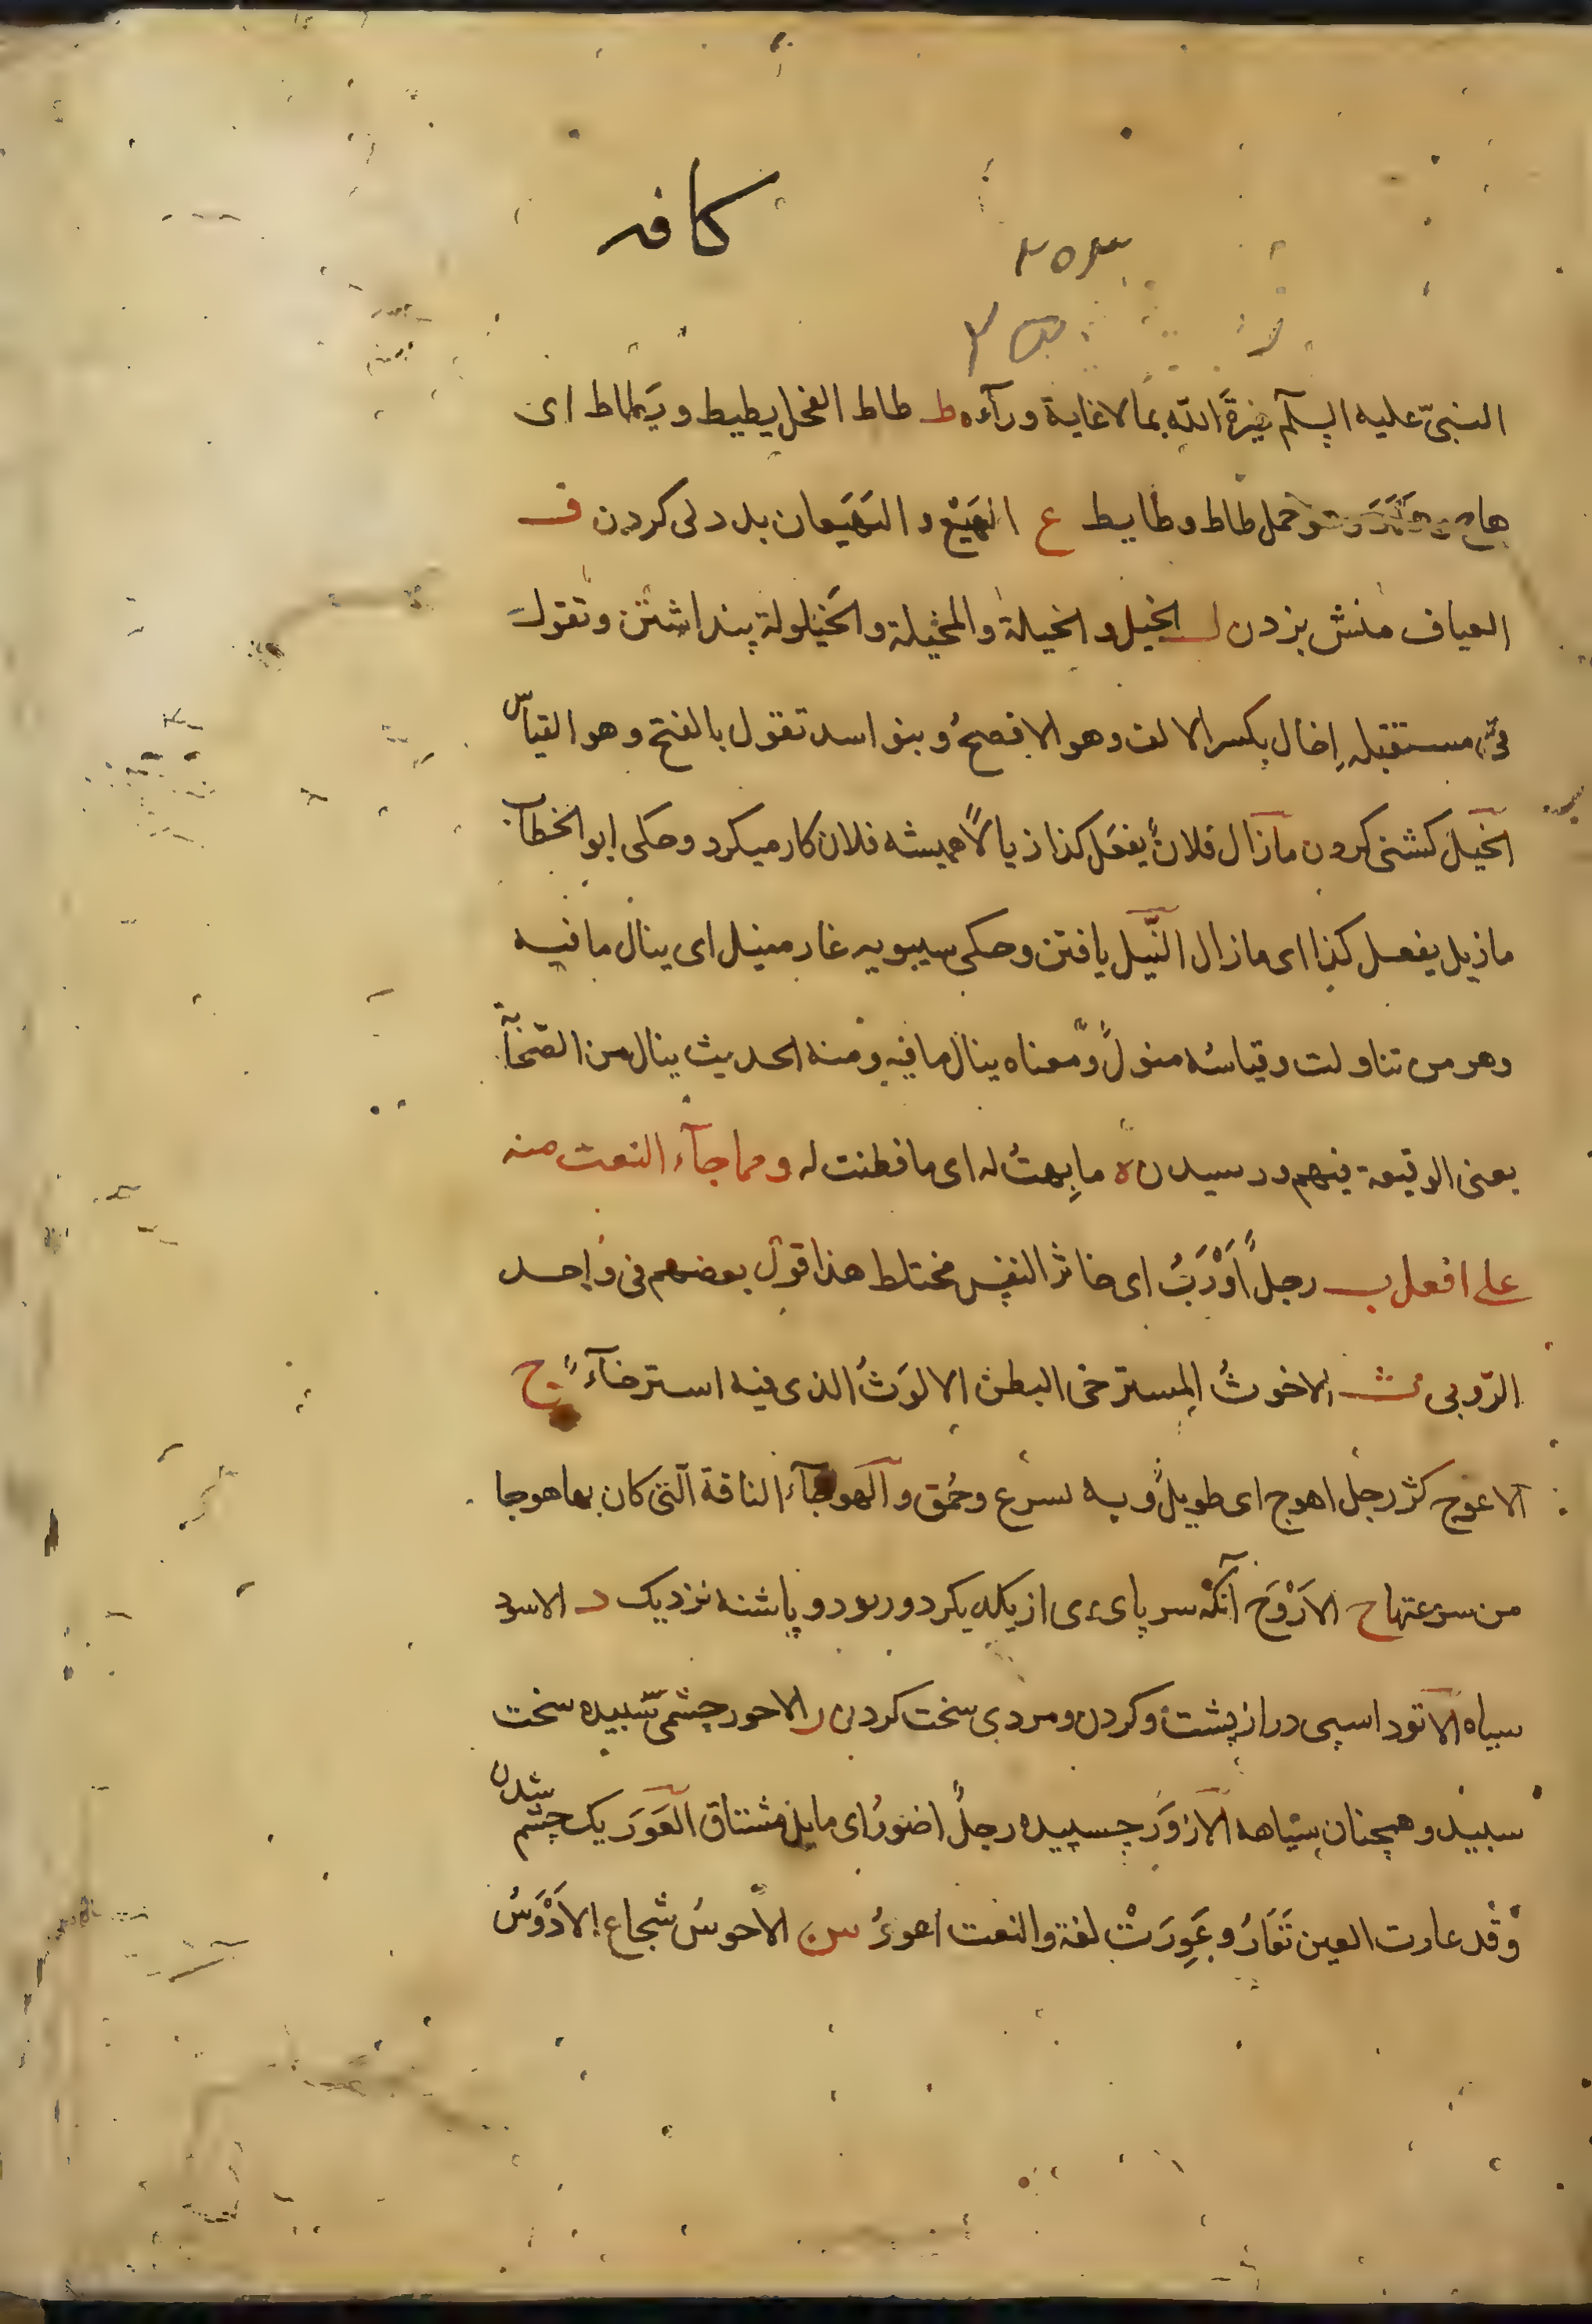 كافه
النبىّ عليه السلم خيرة الله بما لا غاية ورآءه ط طاط الفحل يطيط ويطاط اى
هاج وهدر وهو حمل طاط وطايط ع الهَيْع و الهَيَعان بد دلى كردن ف
العياف منش بزدن ل الخيل والخيلة والمخيلة والخيلولة پنداشتن وتقول
فى مستقبله إخال بكسر الالف وهو الافصحُ وبنو اسد تقول بالفتح وهو القياس
الخيل كشنى كردن مازال فلانٌ يفعَل كذا زيالاً هميشه فلان كار ميكرد وحكى ابو الخطاب
مازيل يفعل كذا اى مازال النَّيل يافتن وحكى سيبويه غار منيل اى ينال ما فيه
وهو من تناولت وقياسُه منولٌ ومعناه ينال ما فيه ومنه الحديث ينال من الصّحابة
يعنى الوقيعة فيهم ورسيدن ه ما بِهتُ له اى ما فطنت له ومما جآء النعت منه
على افعل ب رجلٌ اَوْرَبُ اى خاثر النفس مختلط هذا قول بعضهم فى واحد
الرّوبى ث الاخوثُ المسترخى البطن الالوَثُ الذى فيه استرخآءٌ ج
الاعوج كژ رجل اهوج اى طويلٌ وبه تسرع وحُمق والهوجآء الناقة الّتى كان بها هوجا
من سرعتها ح الاَرْوَح آنكه سر پاىءى از يكديكر دور بود و پاشنه نزديک د الاسود
سياه الاقود اسپى دراز پشت وكردن ومردى سخت كردن ر الاحور چشمى سپيده سخت
سپيد و همچنان سياهه الازوَر چسپيده رجلٌ اضورُ اى مايل مشتاق العَوَر يک چشم شدن
وقد عارت العين تَعَارُ وعَوِرَتْ لغة والنعت اعورُ س الاحوسُ شجاع الاَدْوَسُ